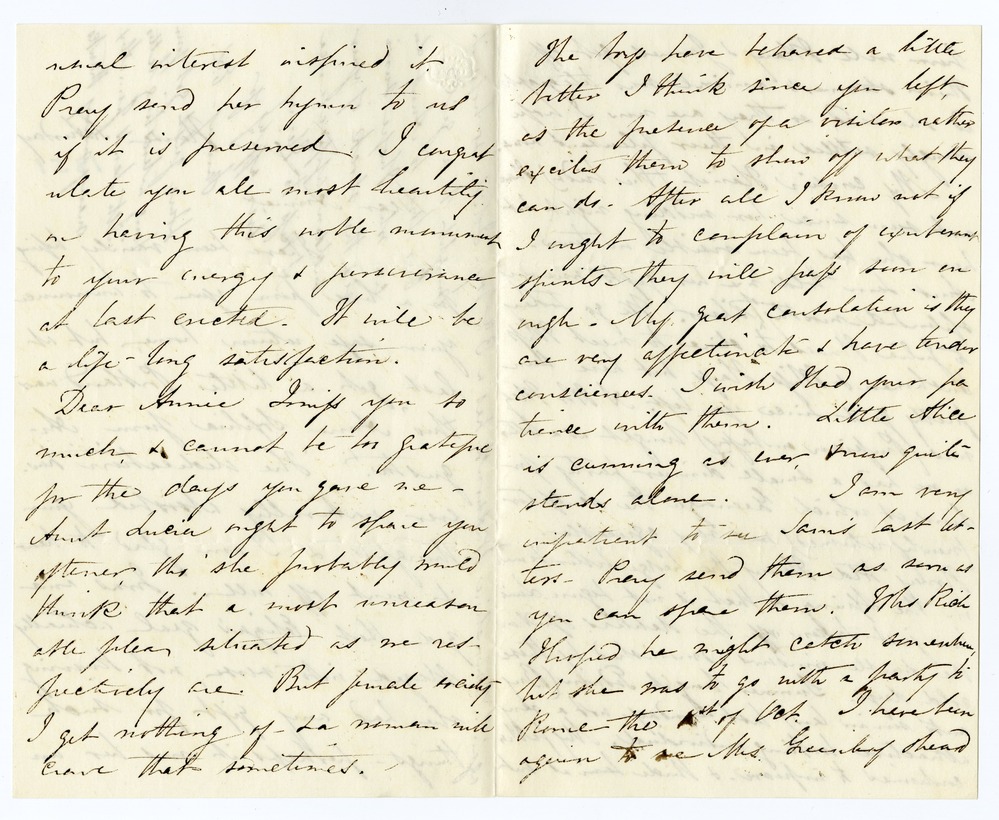 usual interest inspired it.
Pray send her hymn to us
if it is preserved. I congrat
ulate you all most heartily
on having this noble monument
to your energy & perseverance
at last erected. It will be
a life-long satisfaction.
Dear Annie I miss you so
much, & cannot be too grateful
for the days you gave me -
Aunt Lucia ought to spare you
oftener, tho' she probably would
think that a most unreason
able plea, situated as we res-
pectively are. But female society
I get nothing of - & a woman will
crave that sometimes.
The boys have behaved a little
better I think since you left,
as the presence of a visitor rather
excites them to show off what they
can do. After all I know not if
I ought to complain of exuberant
spirits - they will pass soon en
ough - My great consolation is they
are very affectionate & have tender
consciences. I wish I had your pa
tience with them. Little Alice
is cunning as ever, & now quite
stands alone. I am very
impatient to see Sam's last let-
ters - Pray send them as soon as
you can spare them. Mrs Rich
I hoped he might catch somewhere,
but she was to go with a party to
Rome the 1st of Oct. I have been
again to see Mrs. Greenleaf &